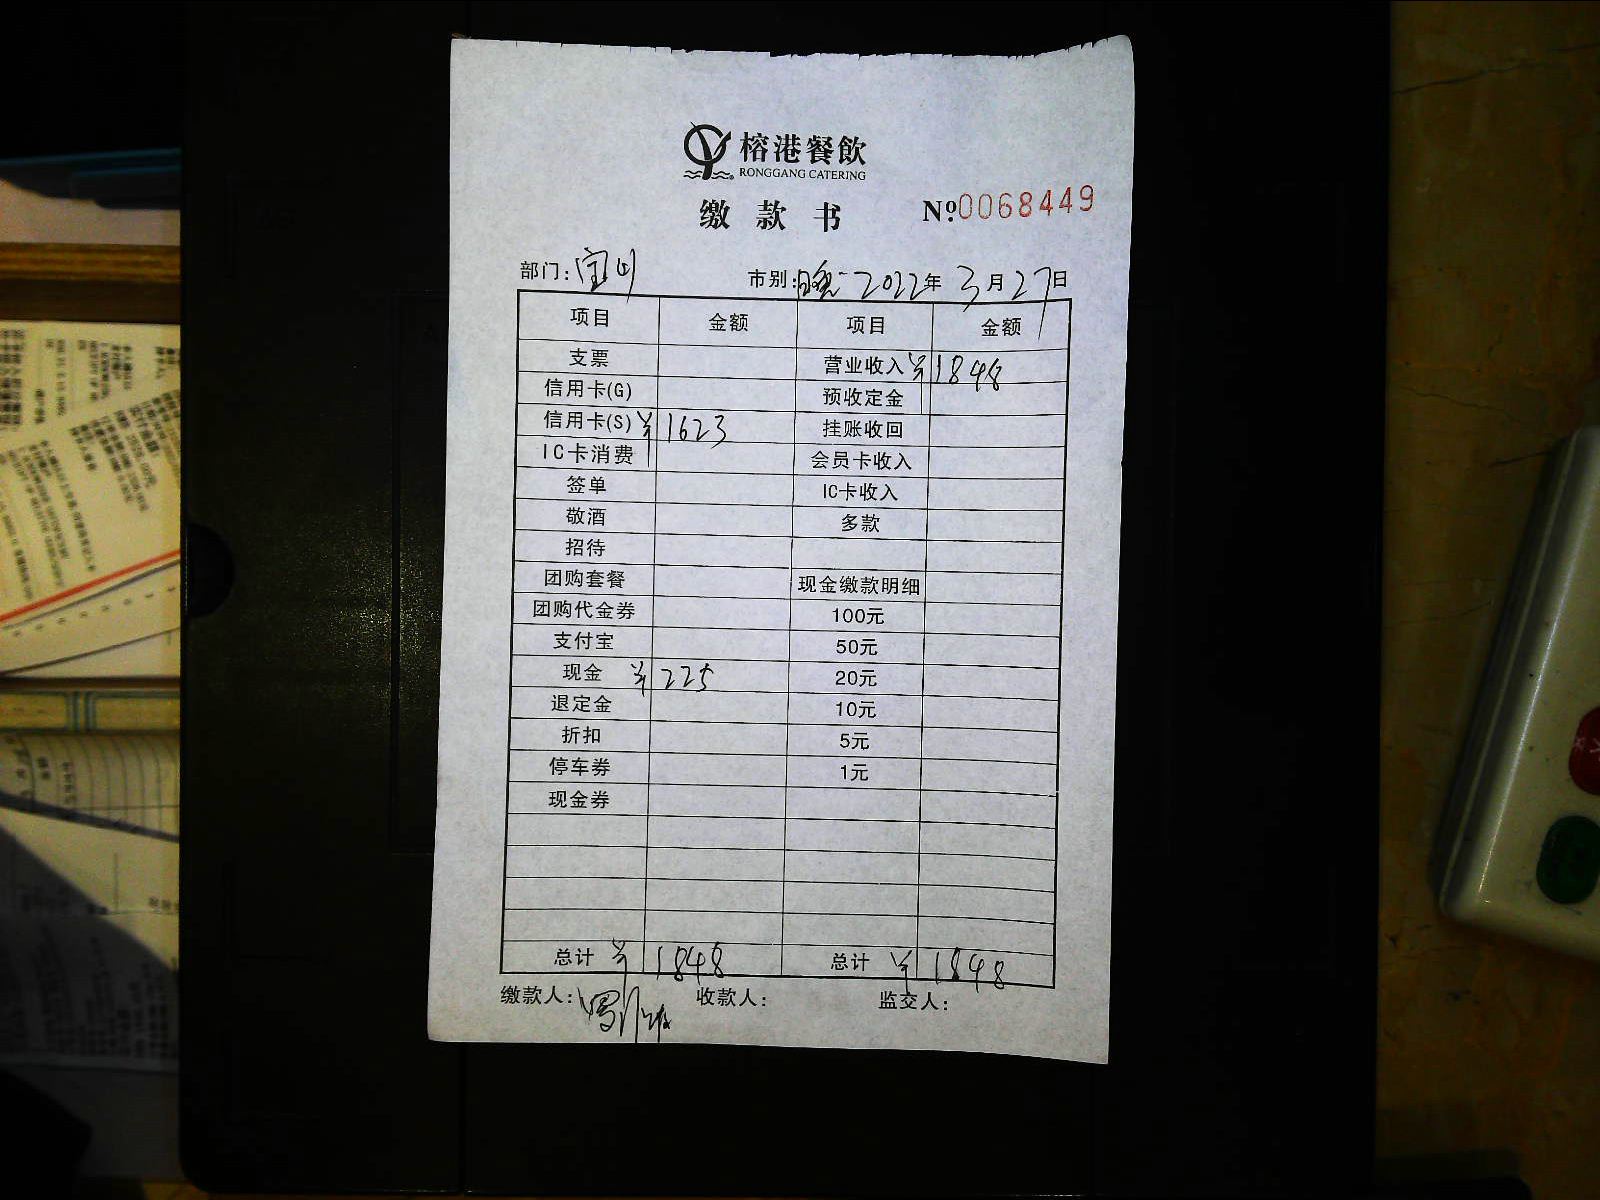 榕港餐飲
RONGGANG CATERING
缴款书 №0068449
部门: 市别:晚 2022年3月27日
项目 金额 项目 金额
支票 营业收入 ¥1848
信用卡(G) 预收定金
信用卡(S) ¥1623 挂账收回
IC卡消费 会员卡收入
签单 IC卡收入
敬酒 多款
招待
团购套餐 现金缴款明细
团购代金券 100元
支付宝 50元
现金 ¥225 20元
退定金 10元
折扣 5元
停车券 1元
现金券
总计 ¥1848 总计 ¥1848
缴款人: 收款人: 监交人: